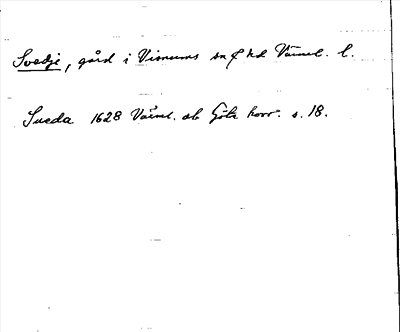 Svedje, gård i Visnums sn & hd Värml. l.
Sueda 1628 Värml. ob Göta horr. s. 18.